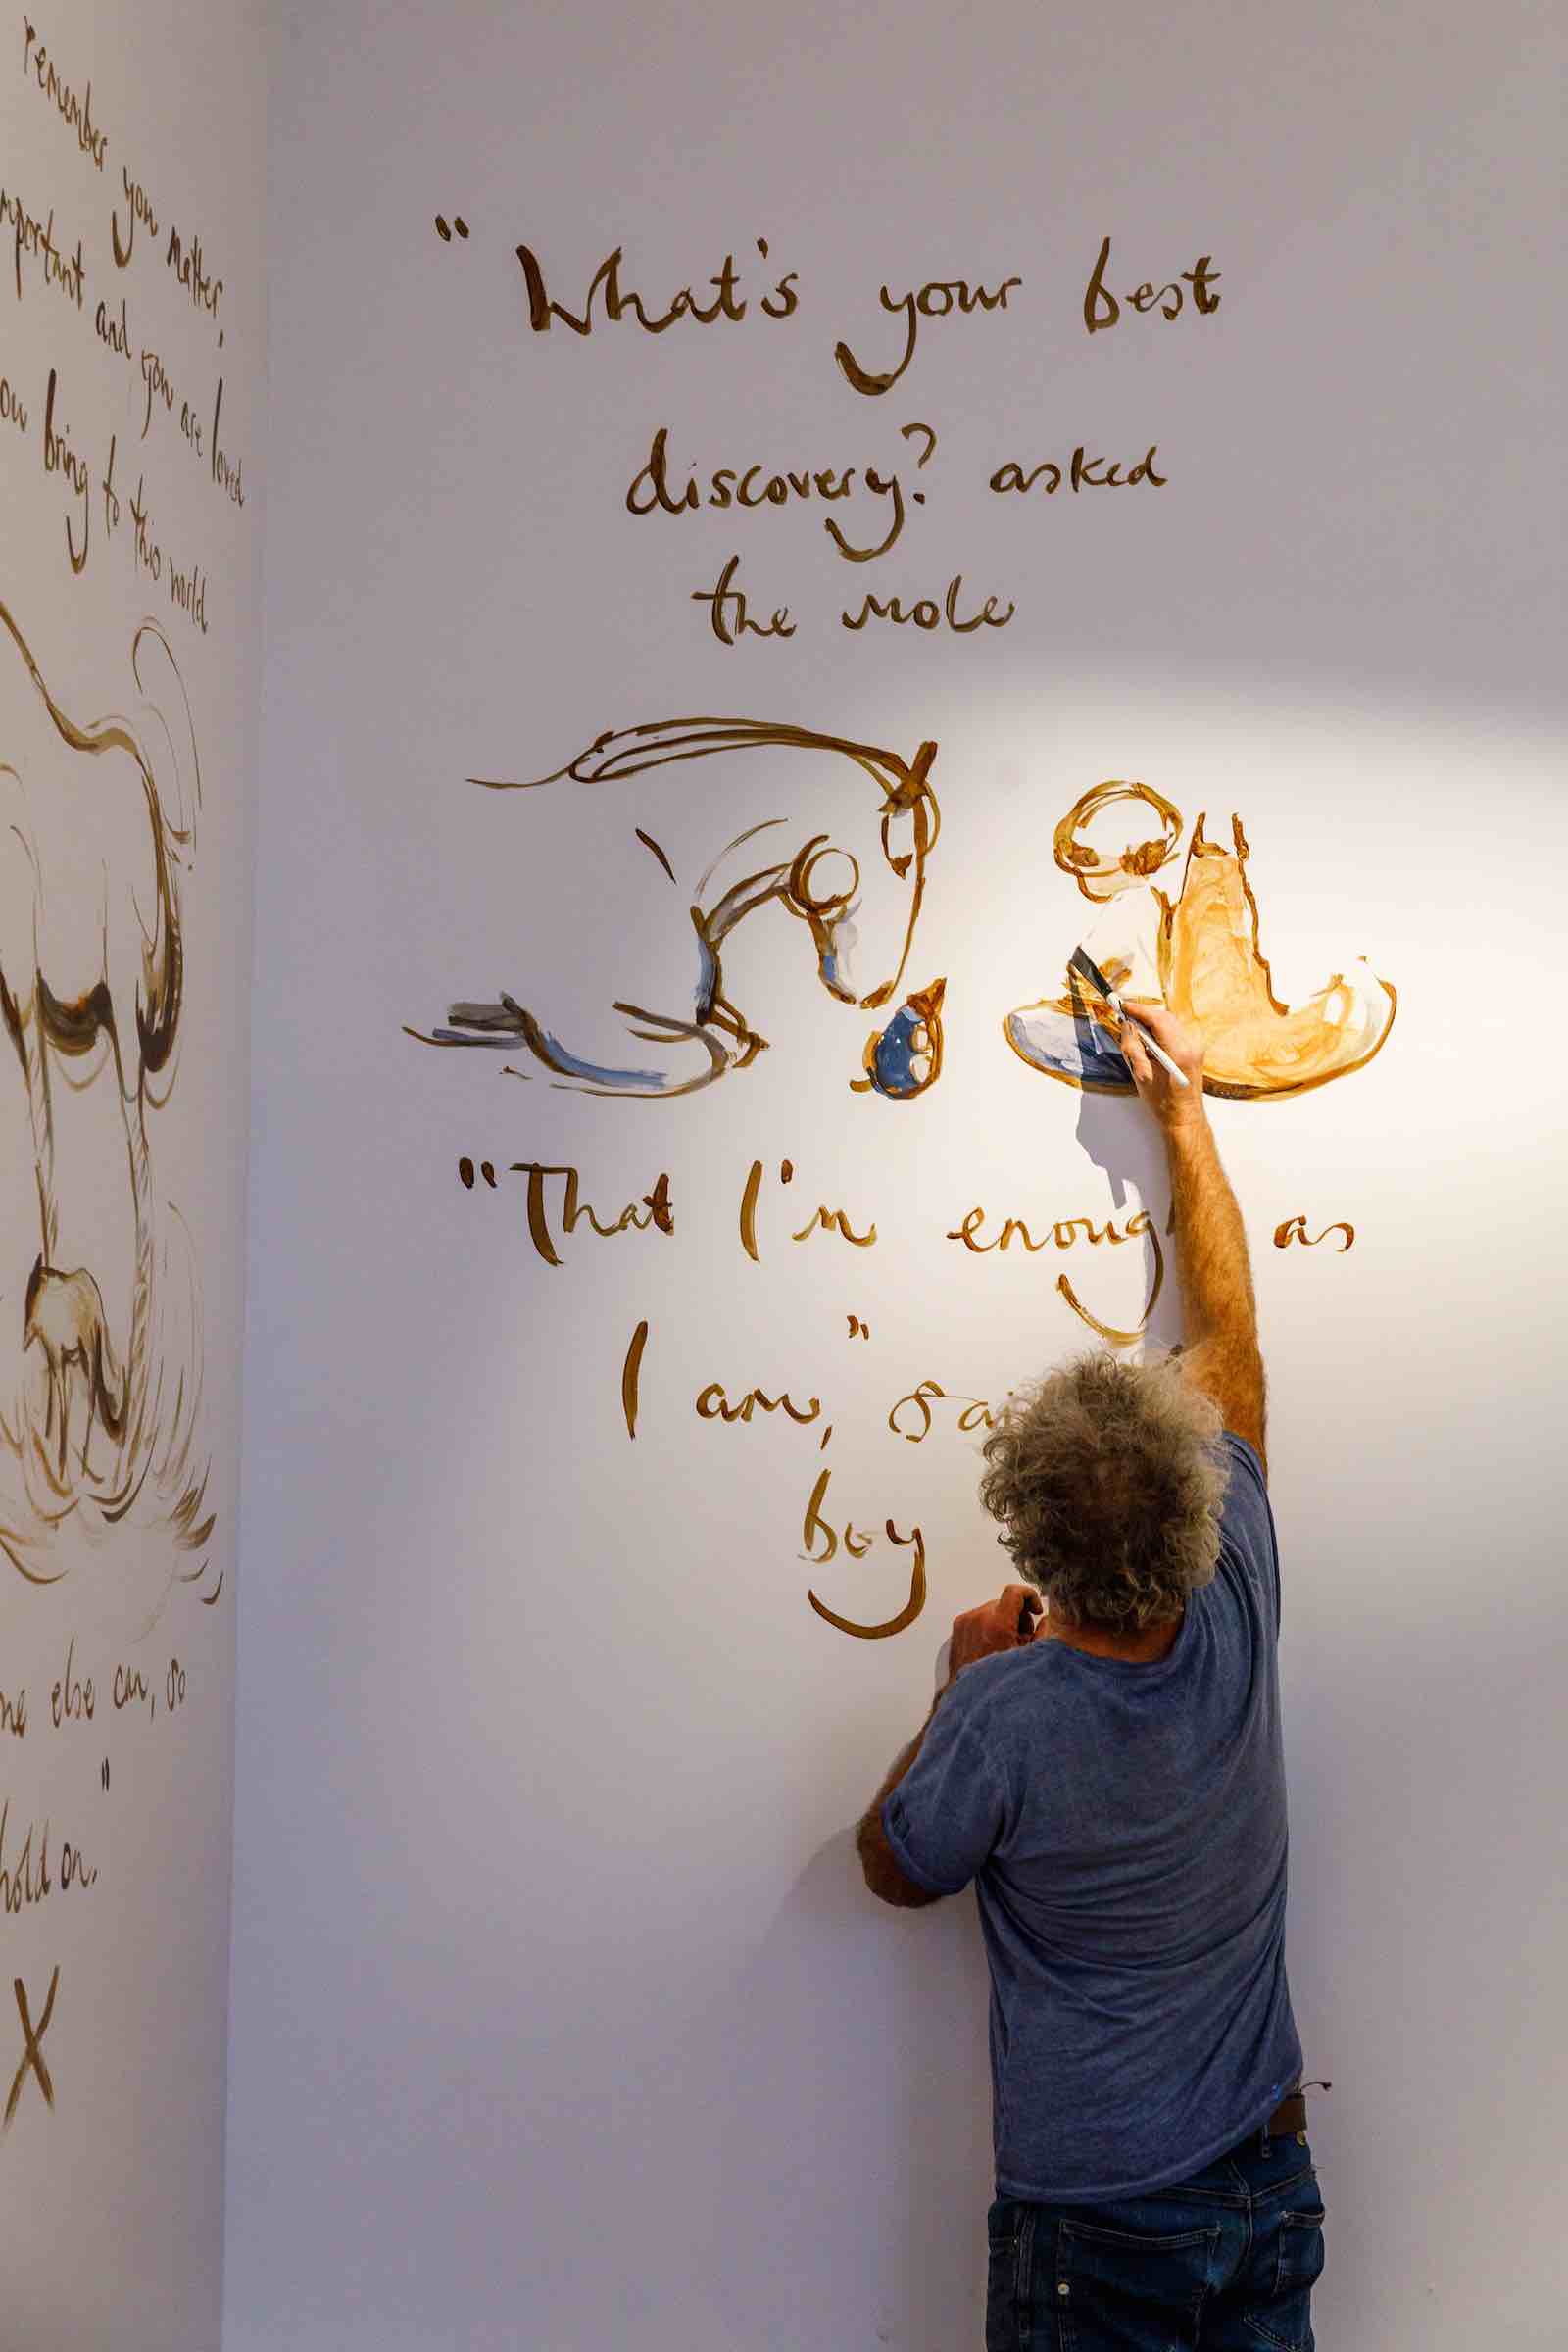 remember you matter,
important and you are loved
bring to this world
else can, so
"
hold on.
X
" What's your best
discovery? asked
the mole
"That I'm enoug as
I am," sai
boy